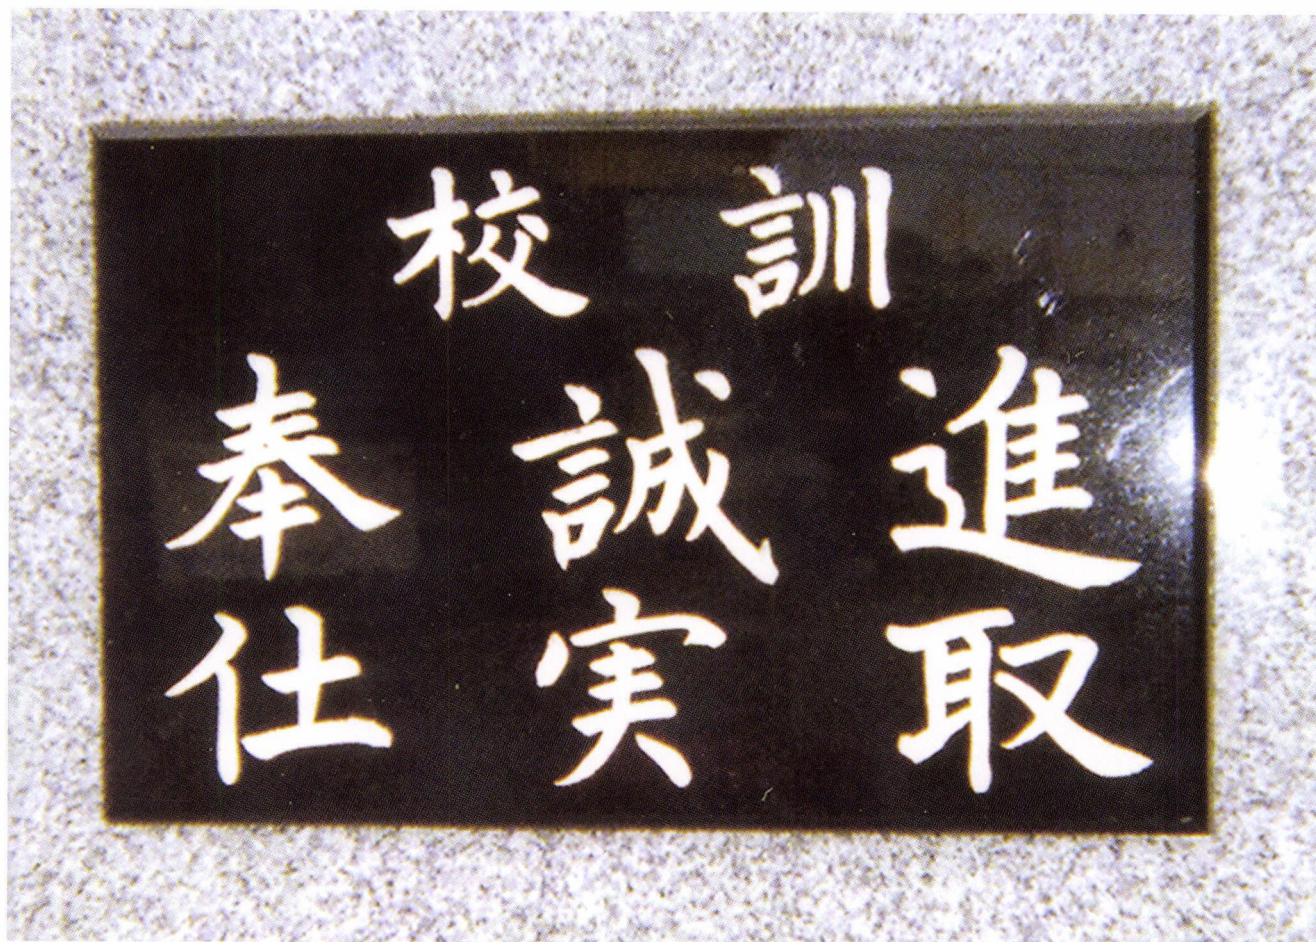 校訓
進取
誠実
奉仕